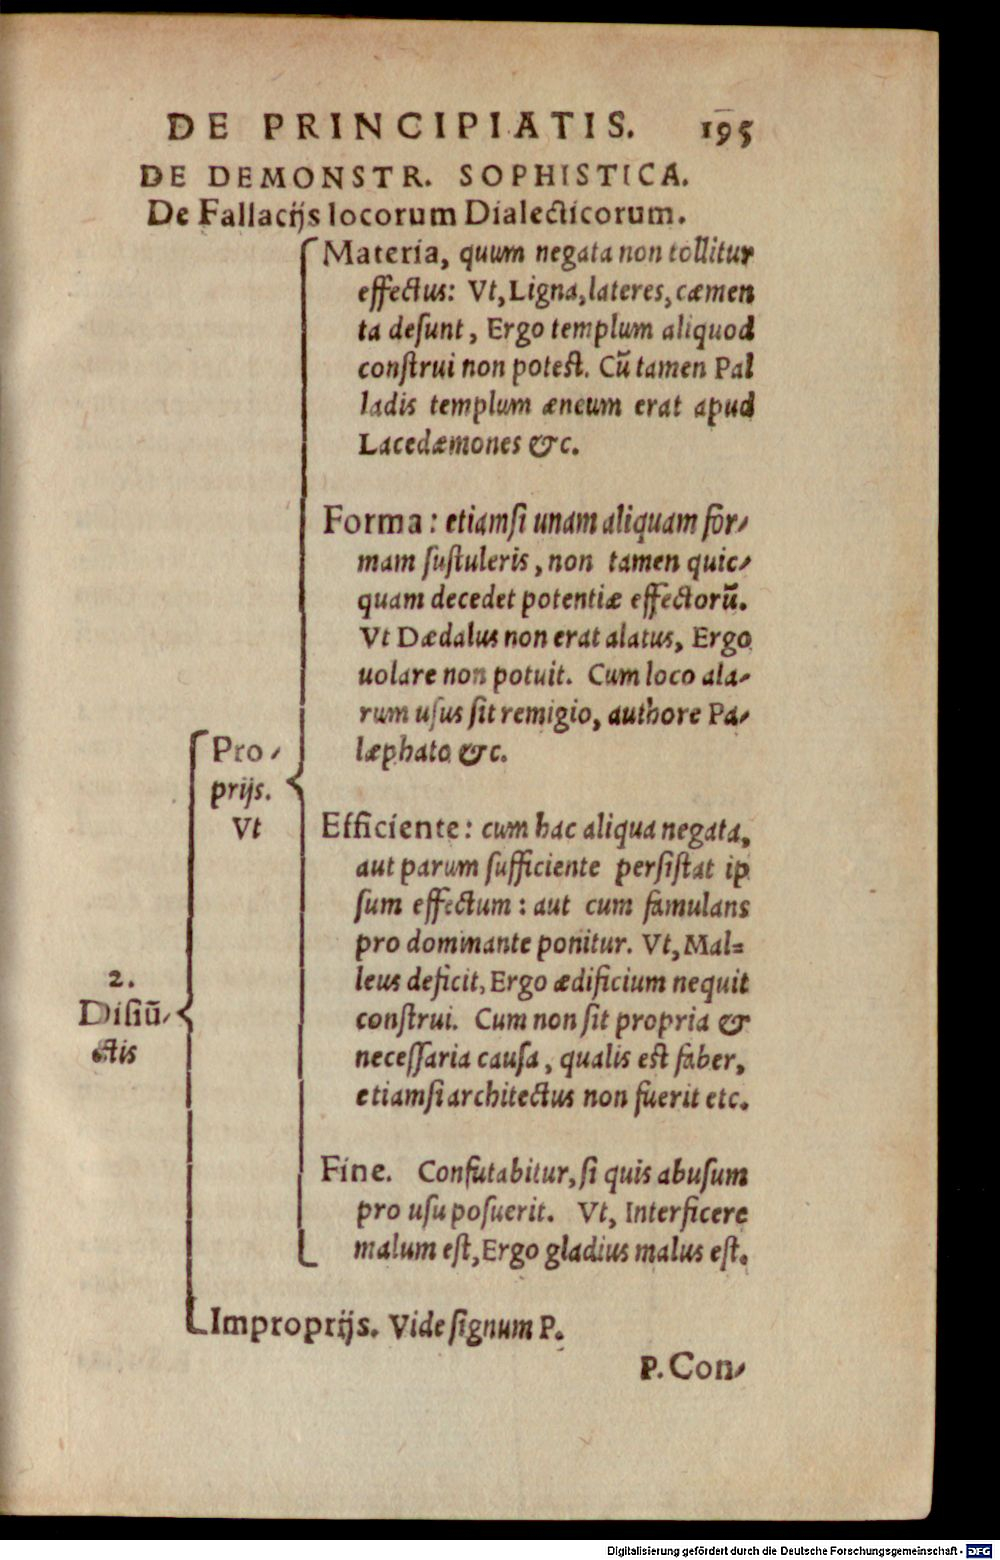 DE PRINCIPIATIS. 195
DE DEMONSTR. SOPHISTICA.
De Fallacijs locorum Dialecticorum.
Materia, quum negata non tollitur
effectus: Vt, Ligna, lateres, cæmen
ta desunt, Ergo templum aliquod
construi non potest. Cũ tamen Pal
ladis templum æneum erat apud
Lacedæmones &c.
Forma: etiamsi unam aliquam for-
mam sustuleris, non tamen quic-
quam decedet potentiæ effectorũ.
Vt Dædalus non erat alatus, Ergo
uolare non potuit. Cum loco ala-
rum usus sit remigio, authore Pa-
læphato &c.
Pro-
prijs.
Vt
Efficiente: cum hac aliqua negata,
aut parum sufficiente persistat ip
sum effectum: aut cum famulans
pro dominante ponitur. Vt, Mal=
leus deficit, Ergo ædificium nequit
construi. Cum non sit propria &
necessaria causa, qualis est faber,
etiamsi architectus non fuerit etc.
2.
Disiũ-
ctis
Fine. Confutabitur, si quis abusum
pro usu posuerit. Vt, Interficere
malum est, Ergo gladius malus est.
Improprijs. Vide signum P.
P. Con-
Digitalisierung gefördert durch die Deutsche Forschungsgemeinschaft - DFG